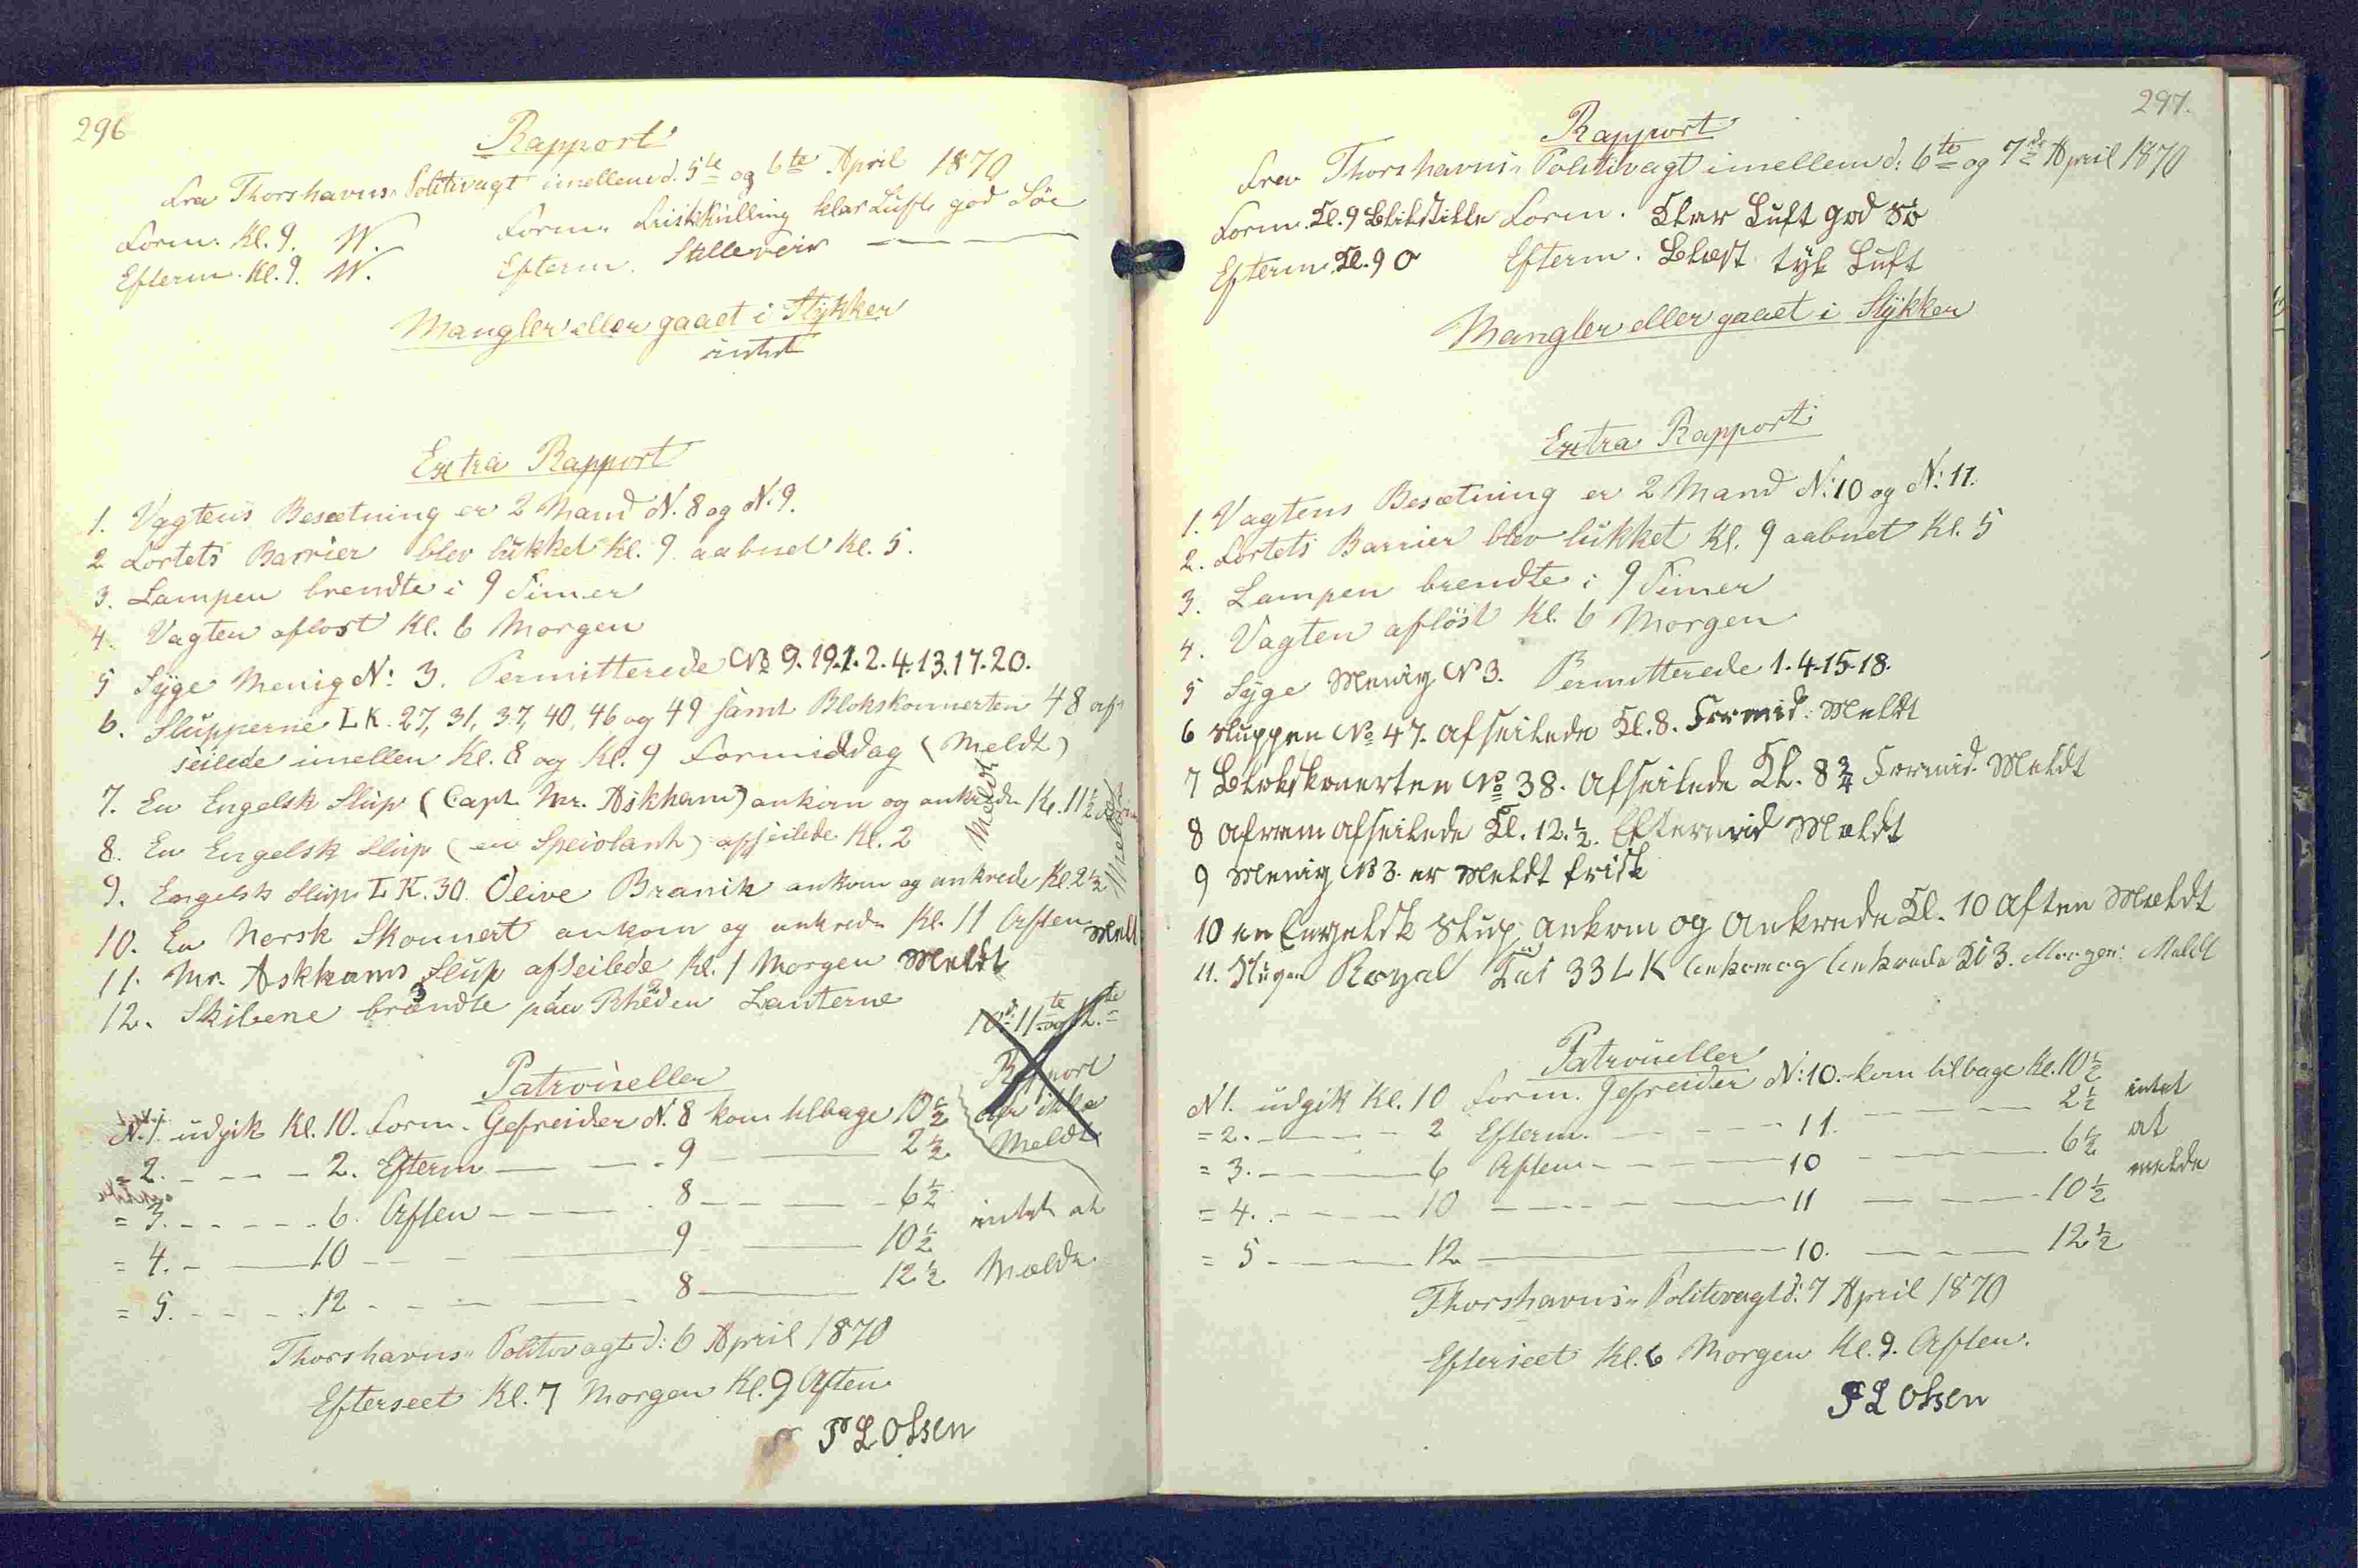 296
Rapport
fra Thorshavns Politivagt imellem d. 5te og 6te April 1870
Form. Kl. 9. W. Form. Friskkulling klar Luft god Söe
Efterm. Kl. 9. W. Efterm. Stilleveir — — —
Mangler eller gaaet i Stykker
intet
Extra Rapport
1. Vagtens Besætning er 2 Mand N. 8 og N. 9.
2 Fortets Barrier blev lukket Kl. 9. aabnet Kl. 5.
3. Lampen brendte i 9 Timer
4. Vagten aflost Kl. 6 Morgen
5 Syge Menig N: 3. Permitterede No 9. 19. 1. 2. 4. 13. 17. 20.
6. Slupperne LK. 27, 31, 37, 40, 46 og 49 samt Blokskonnerten 48 af-
seilede imellem Kl. 8 og Kl. 9 Formiddag (Meldt)
7. En Engelsk Slup (Capt. Mr. Askham) ankom og ankrede Kl. 11½ Form
8. En Engelsk Slup (en Speiolant) afseilede Kl. 2 Meldt
9. Engelsk Slup LK. 30. Olive Branik ankom og ankrede Kl 2½ Meldt
10. En Norsk Skonnert ankom og ankrede Kl. 11 Aften Meldt
11. Mr. Askhams Slup afseilede Kl. 1 Morgen Meldt
12. Skibene brændte paa Rheden Lanterne
3 1 2
10d 11te og 12te
Rapport
er ikke
Meldt
Patrouieller
N. 1. udgik Kl. 10. Form. Gefreider N. 8 kom tilbage 10½
= 2. - - - - 2. Efterm — — - 9 — — 2½
= 3. - - - - - 6. Aften - — — - 8 — — — 6½
= 4. - — 10 - - - — 9 - — 10½ intet at
= 5. - - - - 12 - - - — - 8 — 12½ Mælde
Thorshavns Politivagt d: 6 April 1870
Efterseet Kl. 7 Morgen Kl. 9 Aften
P L Olsen
297.
Rapport
fra Thorshavns Politivagt imellem d: 6te og 7de April 1870
Form. Kl. 9 Blikstille Form. Klar Luft god Sö
Efterm. Kl. 9 O Efterm. Blæst tyk Luft
Mangler eller gaaet i Stykker
Extra Rapport
1. Vagtens Besætning er 2 Mand N: 10 og N: 11.
2. Fortets Barrier blev lukket Kl. 9 aabnet Kl. 5
3. Lampen brendte i 9 Timer
4. Vagten aflöst Kl. 6 Morgen
5 Syge Menig N 3. Permitterede 1. 4. 15. 18.
6 Sluppen No 47. afseilede Kl. 8. Formid. Meldt
7 Blokskonerten No 38. afseilede Kl. 8¾ Formid. Meldt
8 afrem afseilede Kl. 12.½. Eftermid Mældt
9 Menig N 3. er Meldt frisk
10 en Engelsk Slup ankom og ankrede Kl. 10 Aften Mældt
11. Slupen Royal 33 LK ankom og ankrede Kl 3. Morgen: Meldt
Patrouieller
N 1. udgik Kl. 10 Form. Gefreider N: 10. kom tilbage Kl. 10½
= 2. - — - - - 2 Efterm. — - — - 11. - — — — 2½ intet
= 3. - — — 6 Aften - - — - — 10 - — — - 6½ at
= 4. - - — - - 10 — - - - - — 11 — — - — - 10½ melde
= 5 - - — — 12 — — — 10. — - — — 12½
Thorshavns Politivagt d: 7 April 1870
Efterseet Kl. 6 Morgen Kl. 9. Aften.
P L Olsen